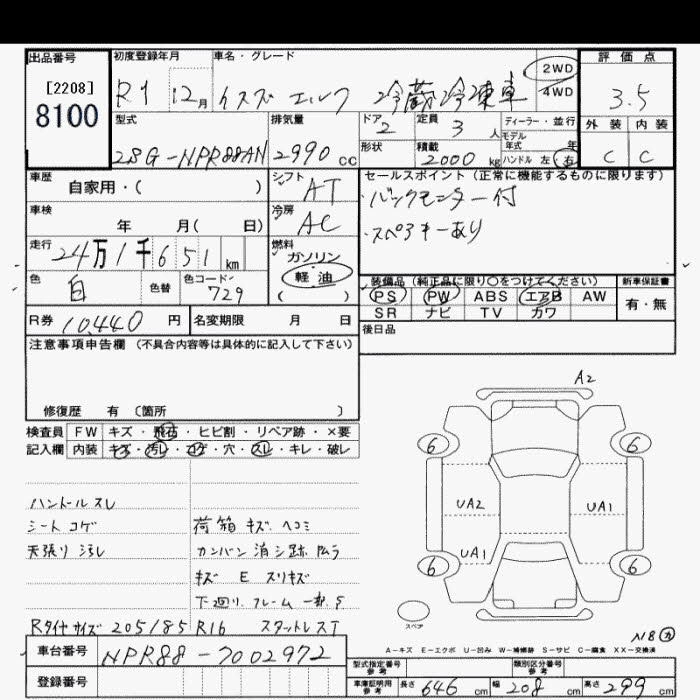 出品番号
[2208]
8100
初度登録年月
R1 12月
車名・グレード
イスズ エルフ 冷蔵冷凍車
2WD
4WD
評価点
3.5
外装 内装
C C
型式
2RG-NPR88AN
排気量
2990 CC
ドア
2
定員
3 人
ディーラー・並行
モデル年式 年
形状
積載
2000 kg
ハンドル 左・右
車歴
自家用・( )
シフト
AT
セールスポイント (正常に機能するものに限ります)
バックモニター付
スペアキーあり
車検
年 月( 日)
冷房
AC
走行
24万1千651 km
燃料
ガソリン
軽油
( )
色
白
色替
色コード
729
装備品 (純正品に限り○をつけてください)
PS PW ABS エアB AW
SR ナビ TV カワ
新車保証書
有・無
R券 10,440 円
名変期限 月 日
後日品
注意事項申告欄 (不具合内容等は具体的に記入して下さい)
修復歴 有 (箇所 )
検査員 FW キズ・飛石・ヒビ割・リペア跡・×要
記入欄 内装 キズ・汚レ・コゲ・穴・スレ・キレ・破レ
ハンドルスレ
シート コゲ
天張り 汚レ
荷箱 キズ ヘコミ
カンバン消シ跡 ムラ
キズ E スリキズ
下廻り、フレーム 一部 S
Rタイヤサイズ 205/85 R16 スタットレスT
A2
6 6
UA2 UA1
UA1
6 6
スペア
A-キズ E-エクボ U-凹み W-補修跡 S-サビ C-腐食 XX-交換済
車台番号
NPR88-7002972
登録番号
型式指定番号 参考
類別区分番号 参考
車庫証明用 参考 長さ 646 cm 幅 208 cm 高さ 299 cm